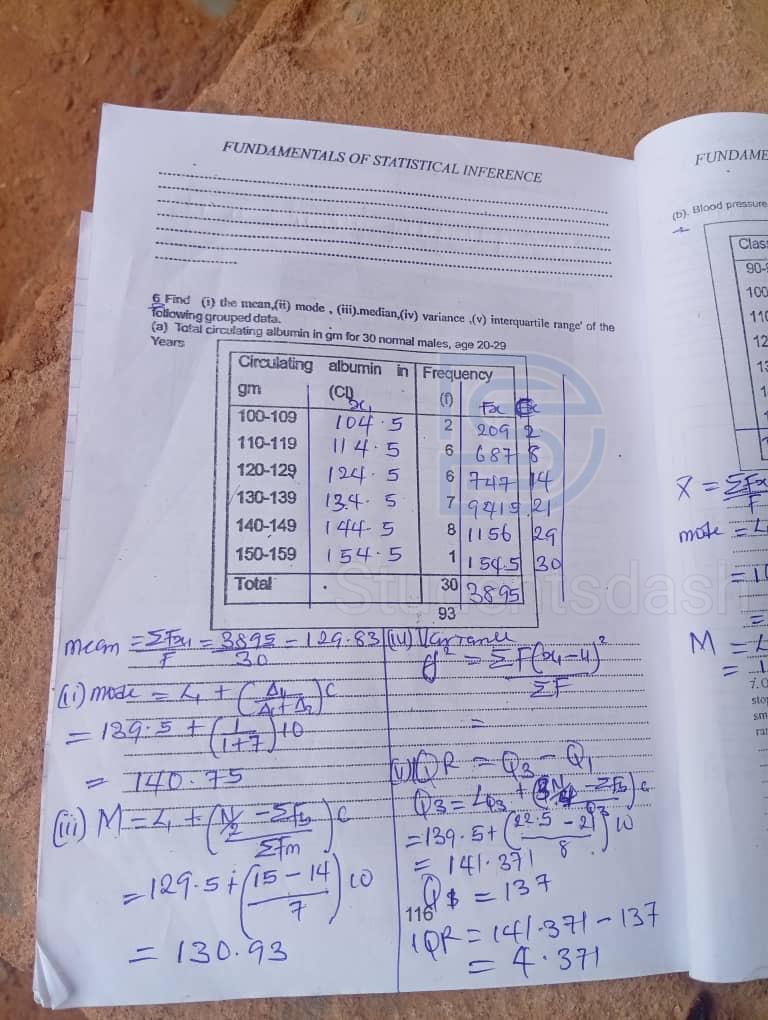 FUNDAMENTALS OF STATISTICAL INFERENCE
6 Find (i) the mean,(ii) mode , (iii).median,(iv) variance ,(v) interquartile range' of the
following grouped data.
(a) Total circulating albumin in gm for 30 normal males, age 20-29
Years
Circulating albumin in gm (CI) x₁ Frequency (f) Fx
100-109 104.5 2 209 2
110-119 114.5 6 687 8
120-129 124.5 6 747 14
130-139 134.5 7 941.5 21
140-149 144.5 8 1156 29
150-159 154.5 1 154.5 30
Total 30 3895
93
mean = ΣFx₁/F = 3895/30 = 129.83
(ii) mode = L₁ + (Δ₁/Δ₁+Δ₂)c
= 139.5 + (1/1+7)10
= 140.75
(iii) M = L₁ + (N/2 - ΣFb/ΣFm)c
= 129.5 + (15 - 14/7)10
= 130.93
(iv) Variance
= ΣF(x₁-u)²/ΣF
=
(v) IQR = Q₃ - Q₁
= 139.5 + (22.5 - 21/8)10
= 141.371
= 137
IQR = 141.371 - 137
= 4.371
116
FUNDAME
(b). Blood pressure
Clas
90-
100
110
12
13
1
X̄ = ΣFx/F
mode = L
= 1
=
M = L
= 1
Studentsdash